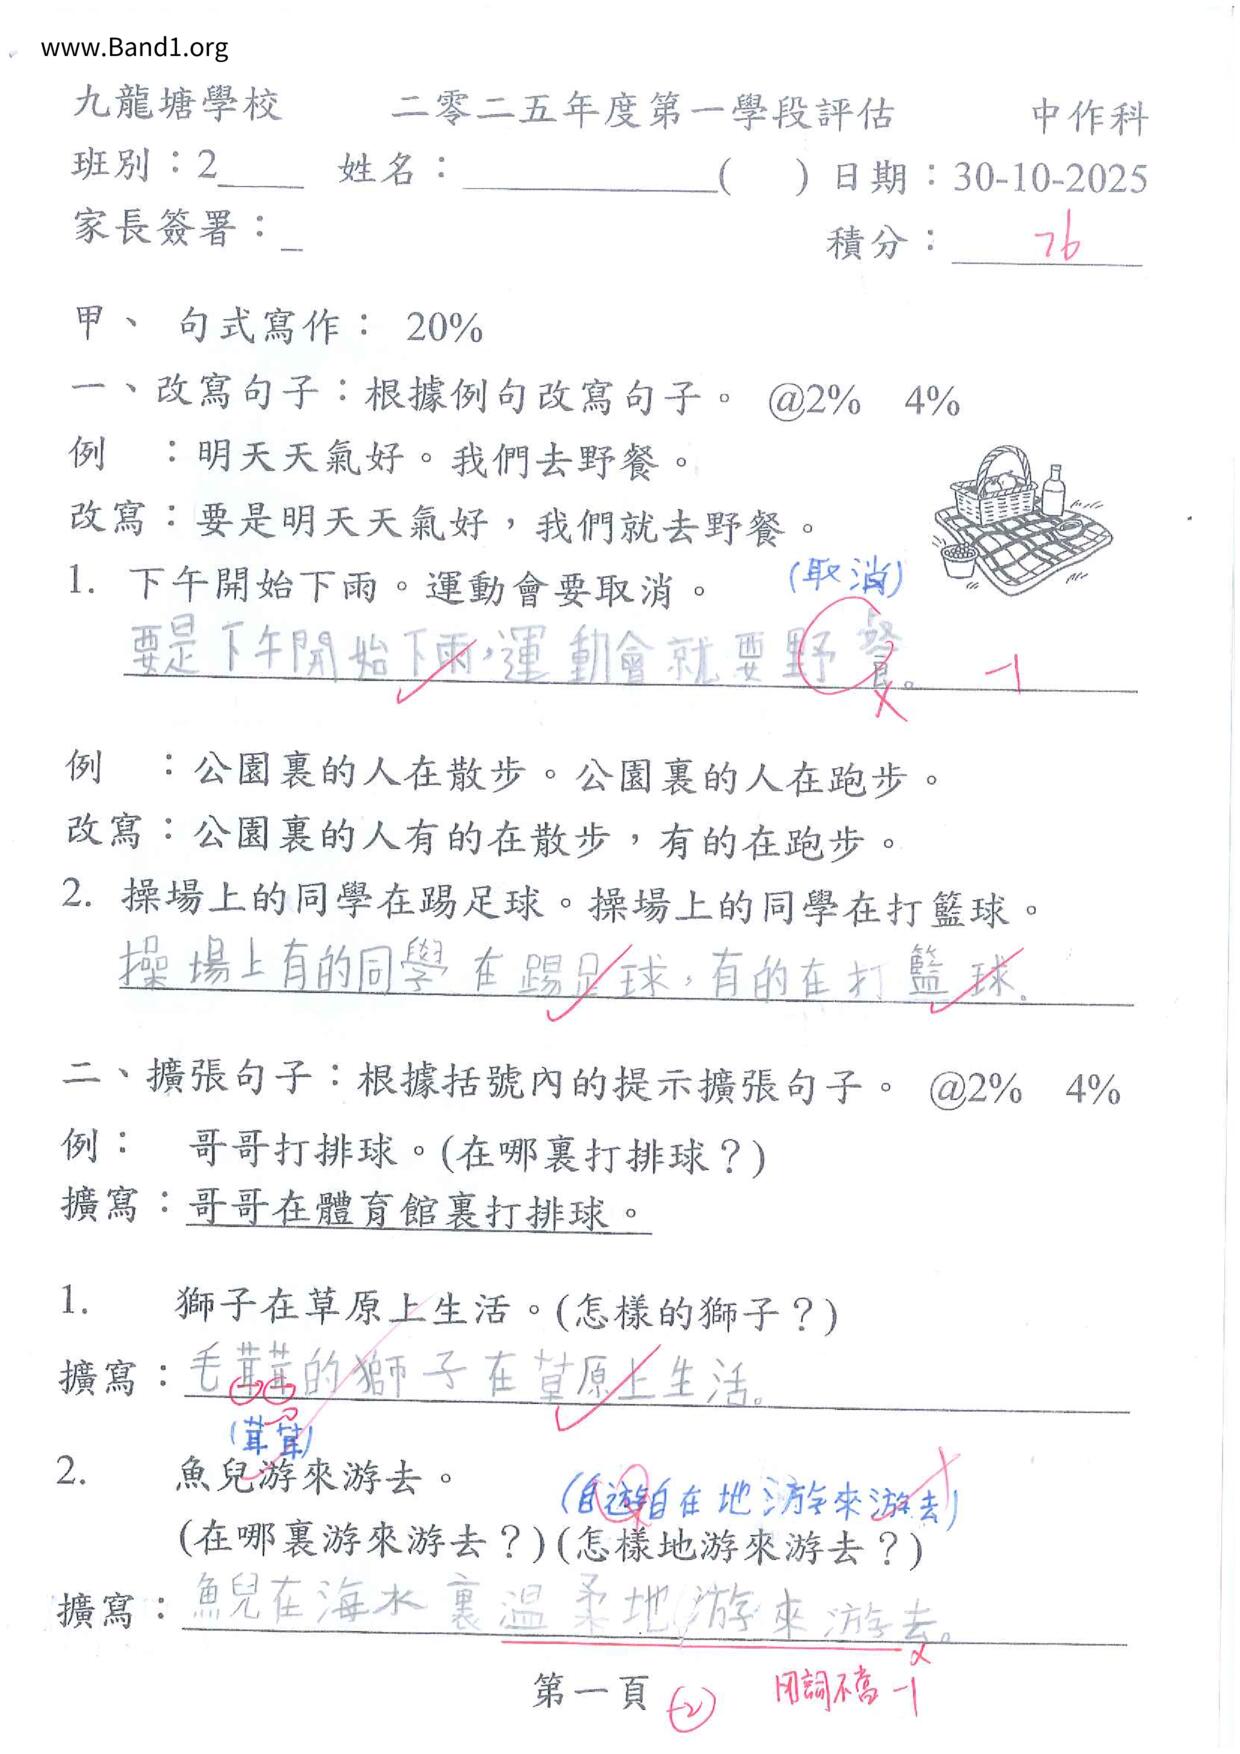 www.Band1.org
九龍塘學校 二零二五年度第一學段評估 中作科
班別：2____ 姓名：____________( ) 日期：30-10-2025
家長簽署：_ 積分：76
甲、 句式寫作： 20%
一、改寫句子：根據例句改寫句子。 @2% 4%
例 ：明天天氣好。我們去野餐。
改寫：要是明天天氣好，我們就去野餐。
1. 下午開始下雨。運動會要取消。 (取消)
要是下午開始下雨，運動會就要野餐。 -1
例 ：公園裏的人在散步。公園裏的人在跑步。
改寫：公園裏的人有的在散步，有的在跑步。
2. 操場上的同學在踢足球。操場上的同學在打籃球。
操場上有的同學在踢足球，有的在打籃球。
二、擴張句子：根據括號內的提示擴張句子。 @2% 4%
例： 哥哥打排球。(在哪裏打排球？)
擴寫：哥哥在體育館裏打排球。
1. 獅子在草原上生活。(怎樣的獅子？)
擴寫：毛茸茸的獅子在草原上生活。
(茸茸)
2. 魚兒游來游去。
(自遊自在地游來游去)
(在哪裏游來游去？)(怎樣地游來游去？)
擴寫：魚兒在海水裏溫柔地游來游去。
第一頁 -2 用詞不當 -1